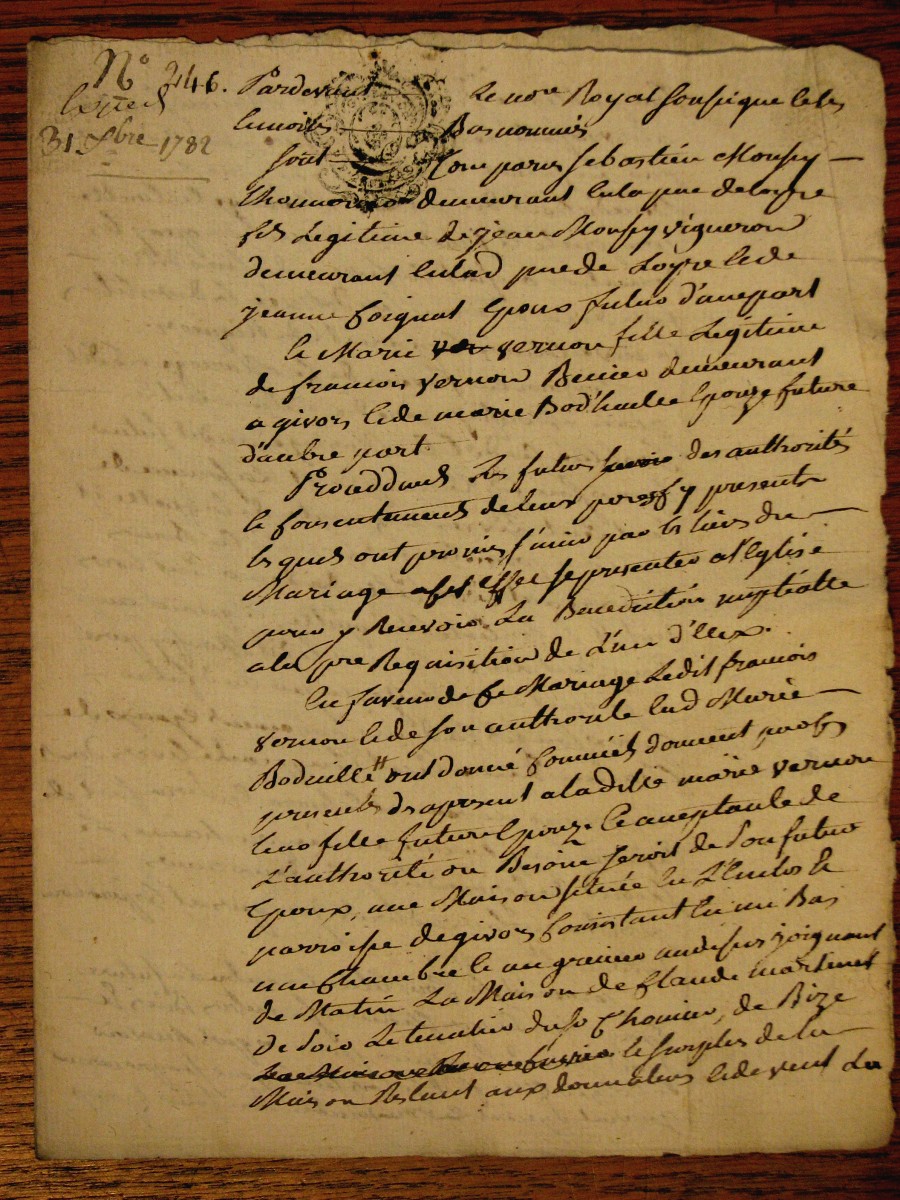 N° 246.
31 9bre 1782
Pardevant le nore Royal soussigné et les
témoins Bas nommés
sont Comparus Sebastien Mousy
demeurant en la psse de Loyre
fils Legitime de jean Mousy vigneron
demeurant en lad psse de Loyre et de
jeanne Coignat Epoux futur d'une part
et Marie vernon fille Legitime
de francois vernon Benier demeurant
a givors et de marie Bod'huille Epouze future
d'autre part
Procedants les futurs des authorités
et Consentements de leurs peres y presents
les quels ont promis s'unir par les liens du
Mariage a cet effet se presenter a l'Eglise
pour y Recevoir La Benediction nuptialle
a la pre Requisition de L'un d'Eux.
En faveur de Ce Mariage Ledit francois
vernon et de son authorité lad Marie
Bodhuille ont donné Comme ils donnent par ces
presentes des apresent a la ditte marie vernon
leur fille future Epouze Ce acceptante de
L'authorité ou Besoin seroit de son futur
Epoux, une Maison située en L'Enclos et
parroisse de givors Consistant en un Bas
une Chambre et un grenier au dessus joignant
de Matin La Maison de Claude martinet
de Soir Le tenalier du sr Thomier, de Bize
le surplus de la
Maison Restant aux donnateurs et de vent La